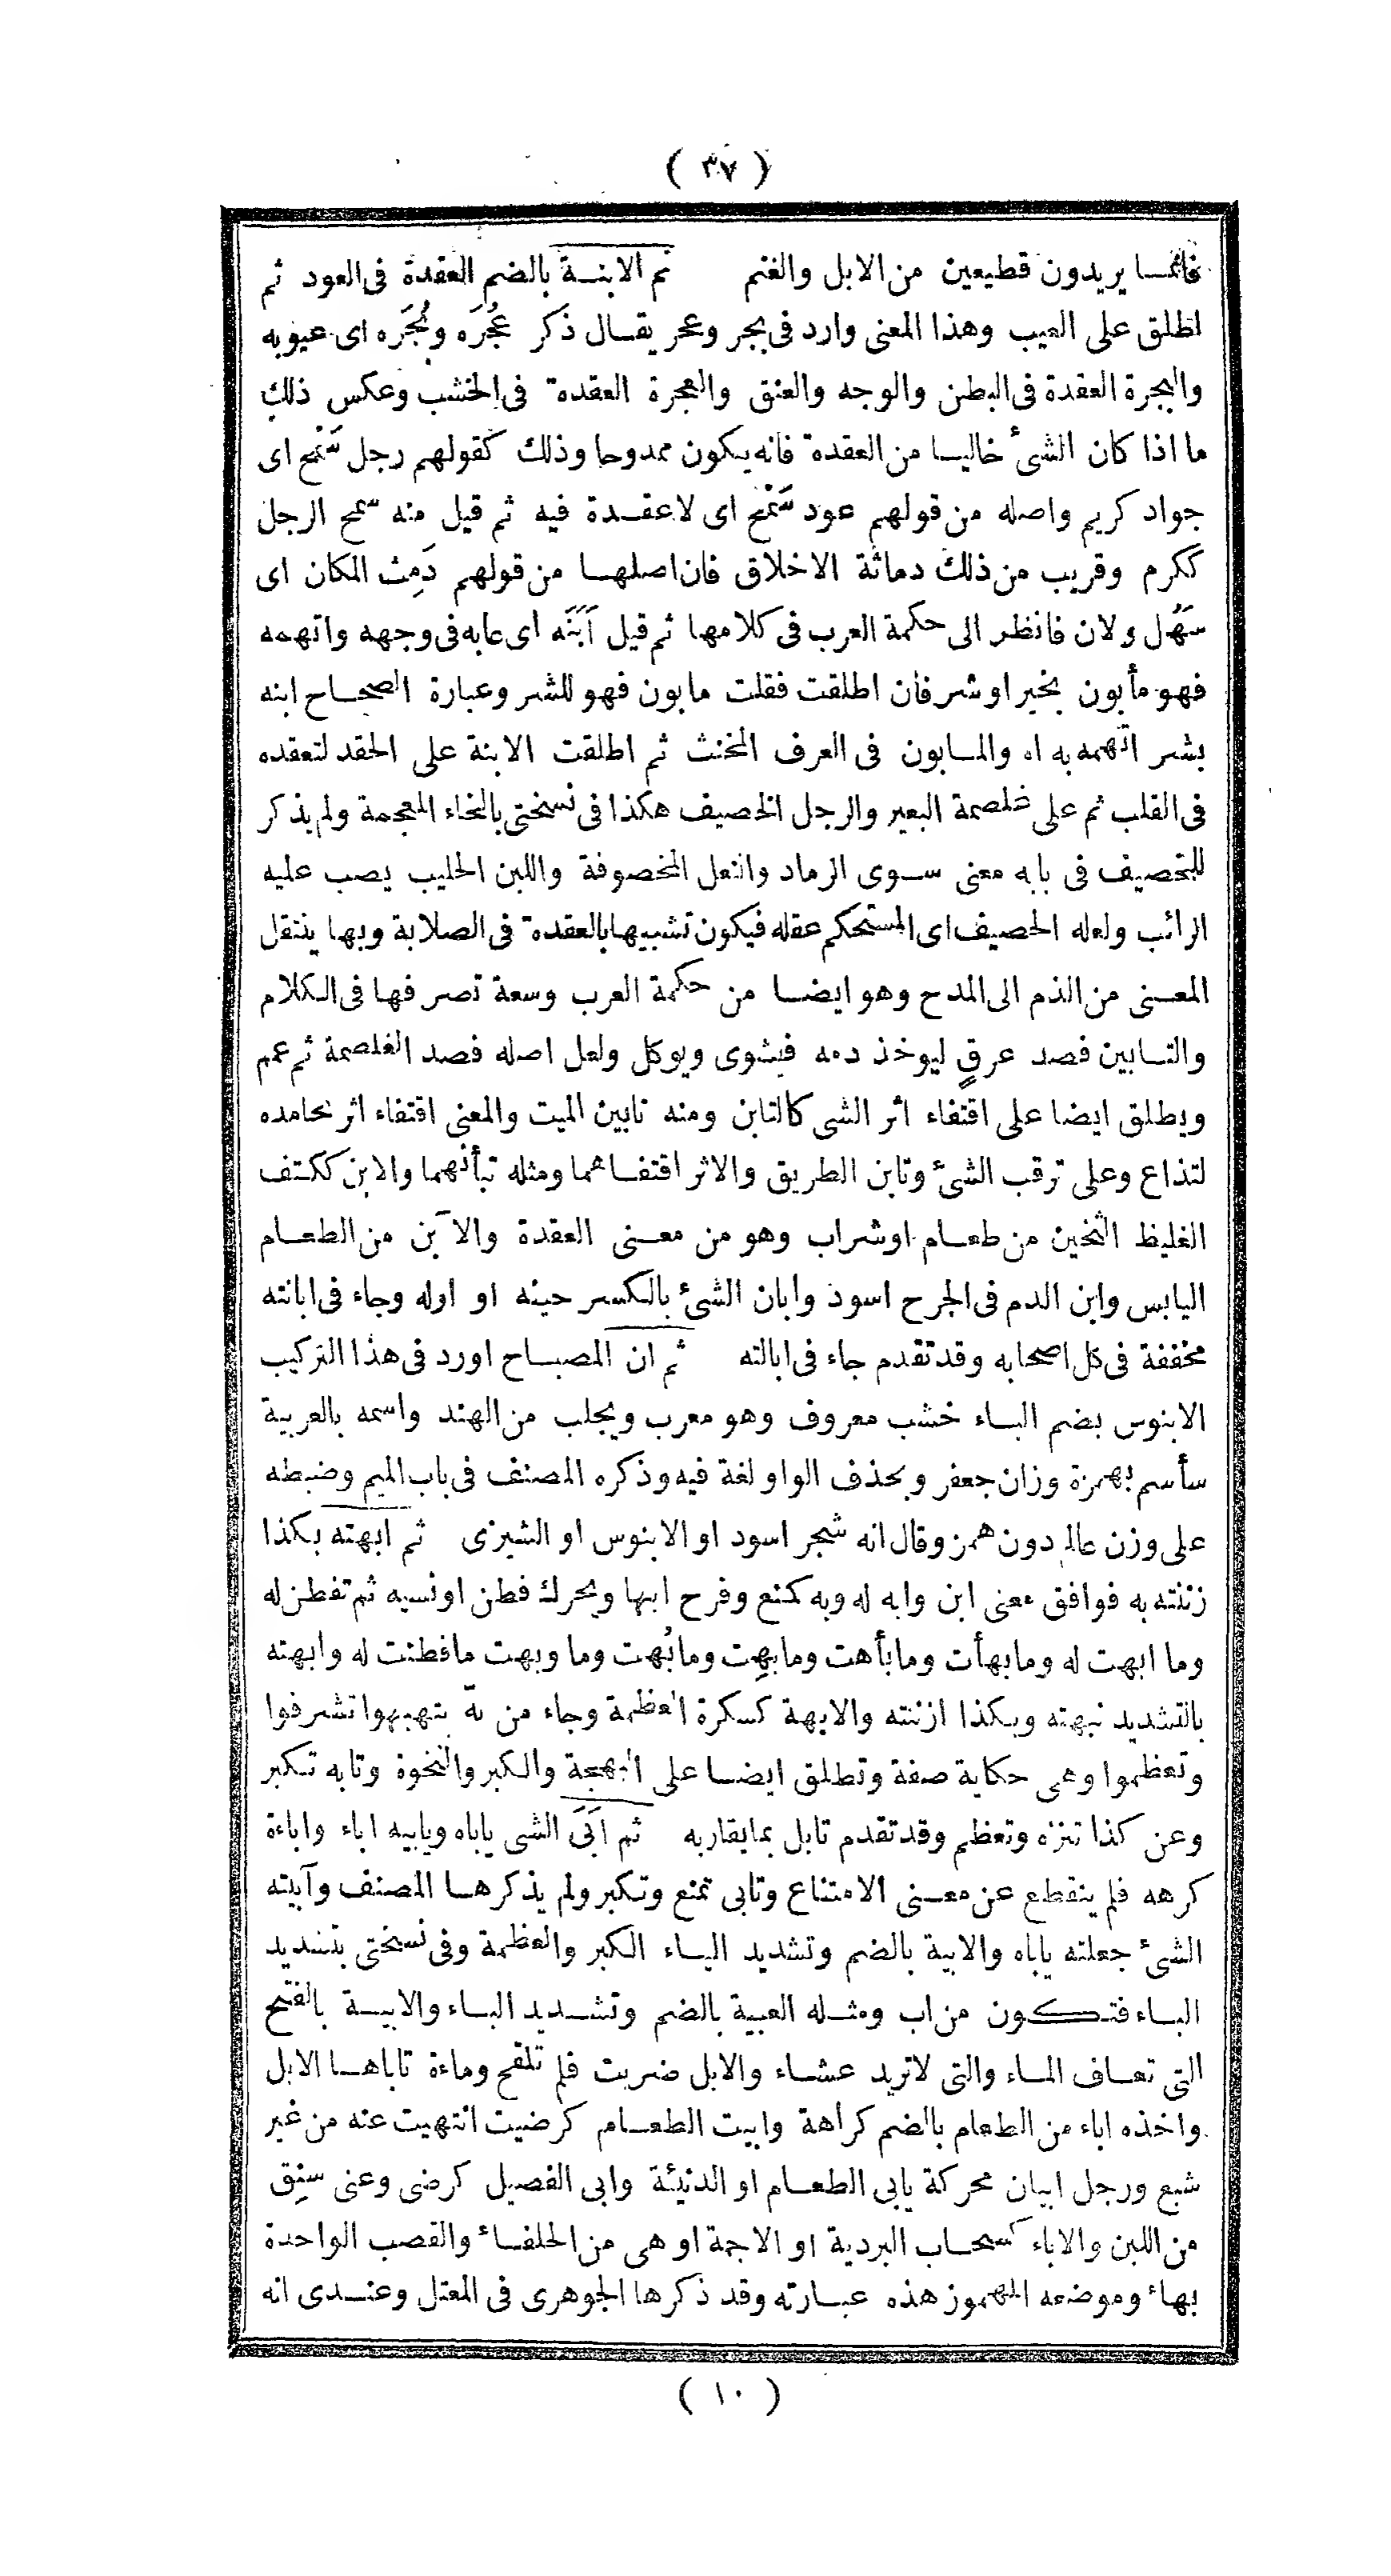 ( ٣٧ )
فانمـا يريدون قطيعين من الابل والغنم ثم الابنـة بالضم العقدة فى العود ثم
اطلق على العيب وهذا المعنى وارد فى بجر وعجر يقـال ذكر عُجُرَه وبُجَره اى عيوبه
والبجرة العقدة فى البطن والوجه والعنق والعجرة العقدة فى الخشب وعكس ذلك
ما اذا كان الشئ خاليـا من العقدة فانه يكون ممدوحا وذلك كقولهم رجل سَمْح اى
جواد كريم واصله من قولهم عود سَمْح اى لا عقـدة فيه ثم قيل منه سمح الرجل
ككرم وقريب من ذلك دماثة الاخلاق فان اصلهـا من قولهم دَمِث المكان اى
سَهُل ولان فانظر الى حكمة العرب فى كلامها ثم قيل اَبَنَه اى عابه فى وجهه واتهمه
فهو مأبون بخير او شر فان اطلقت فقلت مابون فهو للشر وعبارة الصحـاح ابنه
بشر اتّهمه به اه والمـابون فى العرف المخنث ثم اطلقت الابنة على الحقد لتعقده
فى القلب ثم على غلصمة البعير والرجل الخصيف هكذا فى نسختى بالخاء المعجمة ولم يذكر
للخصيف فى بابه معنى سـوى الرماد والنعل المخصوفة واللبن الحليب يصب عليه
الرائب ولعله الحصيف اى المستحكم عقله فيكون تشبيها بالعقدة فى الصلابة وبها ينتقل
المعـنى من الذم الى المدح وهو ايضـا من حكمة العرب وسعة تصرفها فى الكلام
والتـابين فصد عرقٍ ليوخذ دمه فيشوى ويوكل ولعل اصله فصد الغلصمة ثم عمم
ويطلق ايضا على اقتفاء اثر الشى كالتابن ومنه تابين الميت والمعنى اقتفاء اثر محامده
لتذاع وعلى ترقب الشئ وتابن الطريق والاثر اقتفـاهما ومثله تبأنهما والابن ككتف
الغليظ الثخين من طعـام او شراب وهو من معـنى العقدة والآبن من الطعـام
اليابس وابن الدم فى الجرح اسود وابان الشئ بالكسر حينه او اوله وجاء فى ابانته
مخففة فى كل اصحابه وقد تقدم جاء فى ابالته ثم ان المصبـاح اورد فى هذا التركيب
الابنوس بضم البـاء خشب معروف وهو معرب ويجلب من الهند واسمه بالعربية
سأسم بهمزة وزان جعفر وبحذف الواو لغة فيه وذكره المصنف فى باب الميم وضبطه
على وزن عالم دون همز وقال انه شجر اسود او الابنوس او الشيزى ثم ابهته بكذا
زننته به فوافق معنى ابن وابه له وبه كمنع وفرح ابها ويحرك فطن او نسيه ثم تفطن له
وما ابهت له وما بهأت وما بأهت وما بهِت وما بُهت وما وبهت ما فطنت له وابهته
بالتشديد نبهته وبكذا ازننته والابهة كسكرة العظمة وجاء من بهّ يتهبهوا تشرفوا
وتعظموا وهى حكاية صفة وتطلق ايضـا على البهجة والكبر والنخوة وتابه تكبر
وعن كذا تنزه وتعظم وقد تقدم تابل بما يقاربه ثم اَبَى الشى ياباه ويابيه اباء واباءة
كرهه فلم ينقطع عن معـنى الامتناع وتابى تمنع وتكبر ولم يذكرهـا المصنف وآبيته
الشئ جعلته ياباه والابية بالضم وتشديد اليـاء الكبر والعظمة وفى نسختى بتشديد
البـاء فتـكون من اب ومثـله العبية بالضم وتشـديد البـاء والابيـة بالفتح
التى تعـاف المـاء والتى لا تريد عشـاء والابل ضربت فلم تلقح وماءة تاباهـا الابل
واخذه اباء من الطعام بالضم كراهة وابيت الطعـام كرضيت انتهيت عنه من غير
شبع ورجل ابيان محركة يابى الطعـام او الدنيئة وابى الفصيل كرضى وعنى سنِق
من اللبن والاباء كسحـاب البردية او الاجمة او هى من الحلفـاء والقصب الواحدة
بهاء وموضعه المهموز هذه عبـارته وقد ذكرها الجوهرى فى المعتل وعنـدى انه
( ١٠ )